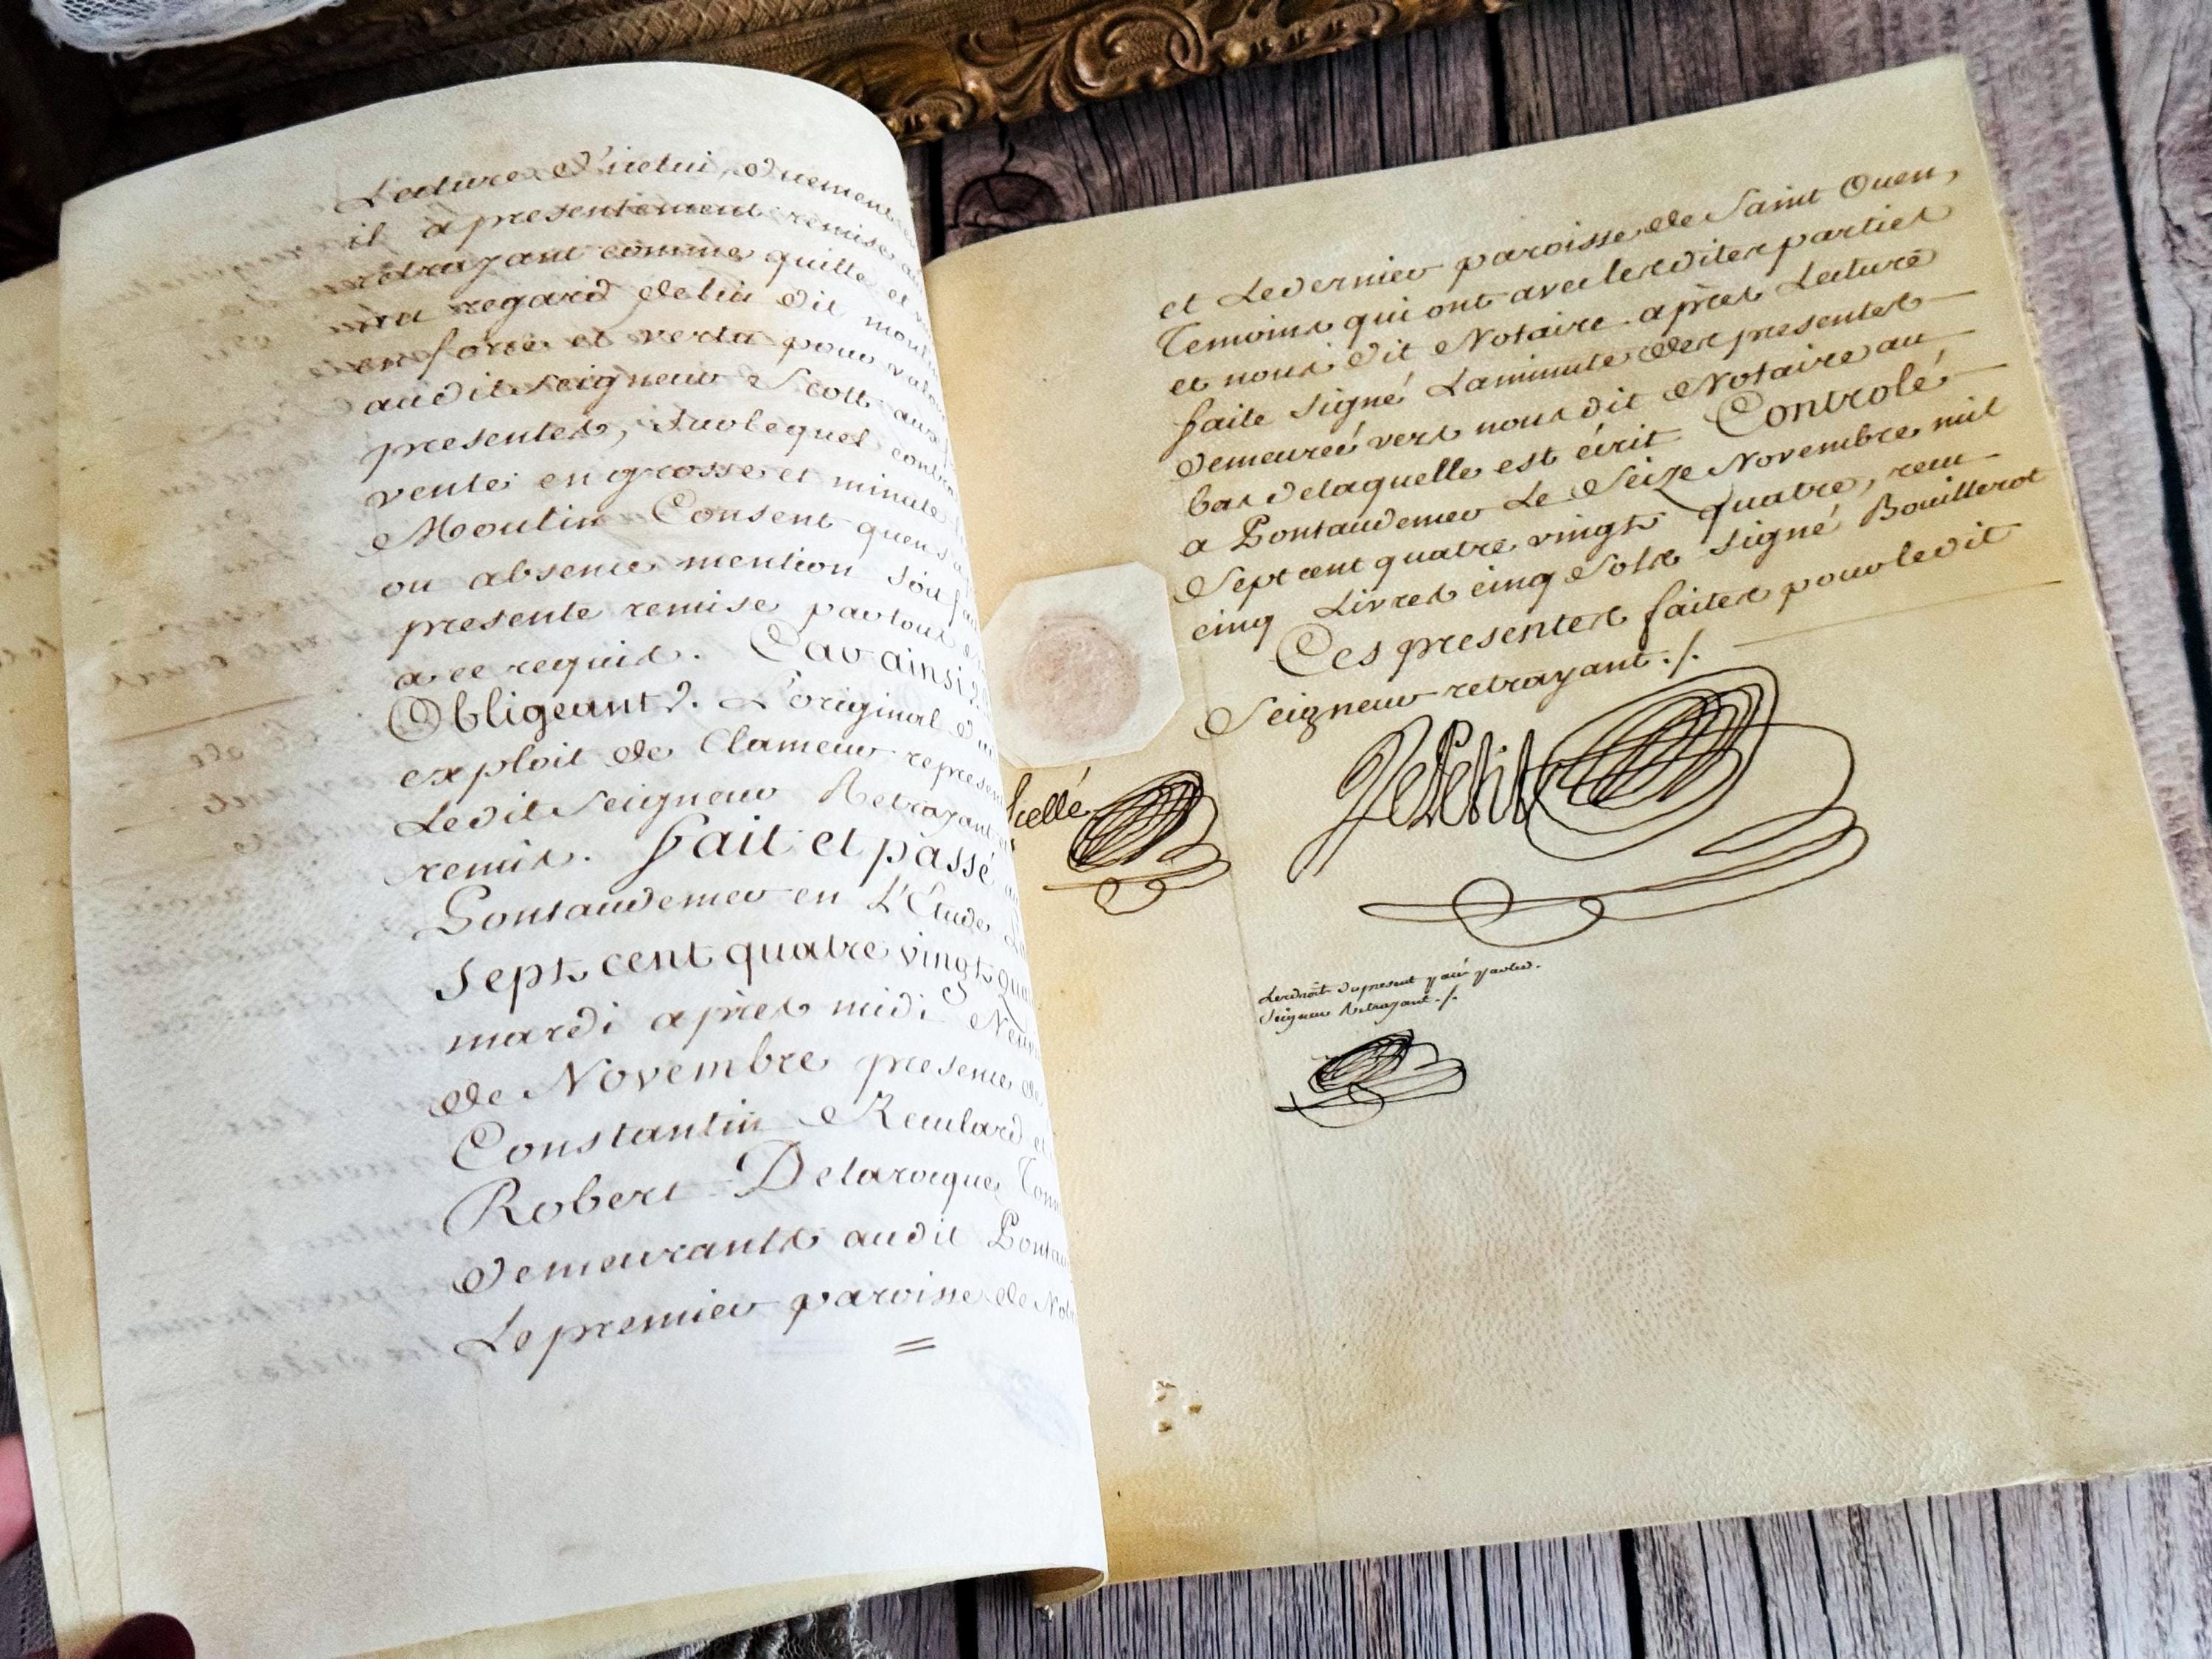 Lecture d'icelui, duement
il a presentement remise au
retrayant comme quitte et
au regard de lui dit
en force et vertu pour valoir
audit Seigneur Scott aux
presentes, Surlequel contrat
vente en grosse et minute
Moulin Consent quen s
ou absence mention Soit fai
presente remise partout
a ce requis. Car ainsi
Obligeant. L'original d
exploit de Clameur represen
Ledit Seigneur Retrayant
remis. fait et passé
Pontaudemer en L'Etude Le
Sept cent quatre vingt qua
mardi après midi Neuv
de Novembre presence de
Constantin et
Robert Delarocque
demeurants audit Pontau
Le premier paroisse de Not
et Le dernier paroisse de Saint Ouen,
Temoins qui ont avec lesdites parties
et nous dit Notaire après Lecture
faite Signé La minute des presentes
demeureé vers nous dit Notaire au
bas de laquelle est écrit Controlé
a Pontaudemer Le Seize Novembre mil
Sept cent quatre vingt quatre, reçu
cinq Livres cinq Sols Signé Bouillerot
Ces presentes faites pour ledit
Seigneur retrayant ./.
Scellé
LePetit
Les droits du present payé par le
Seigneur Retrayant ./.